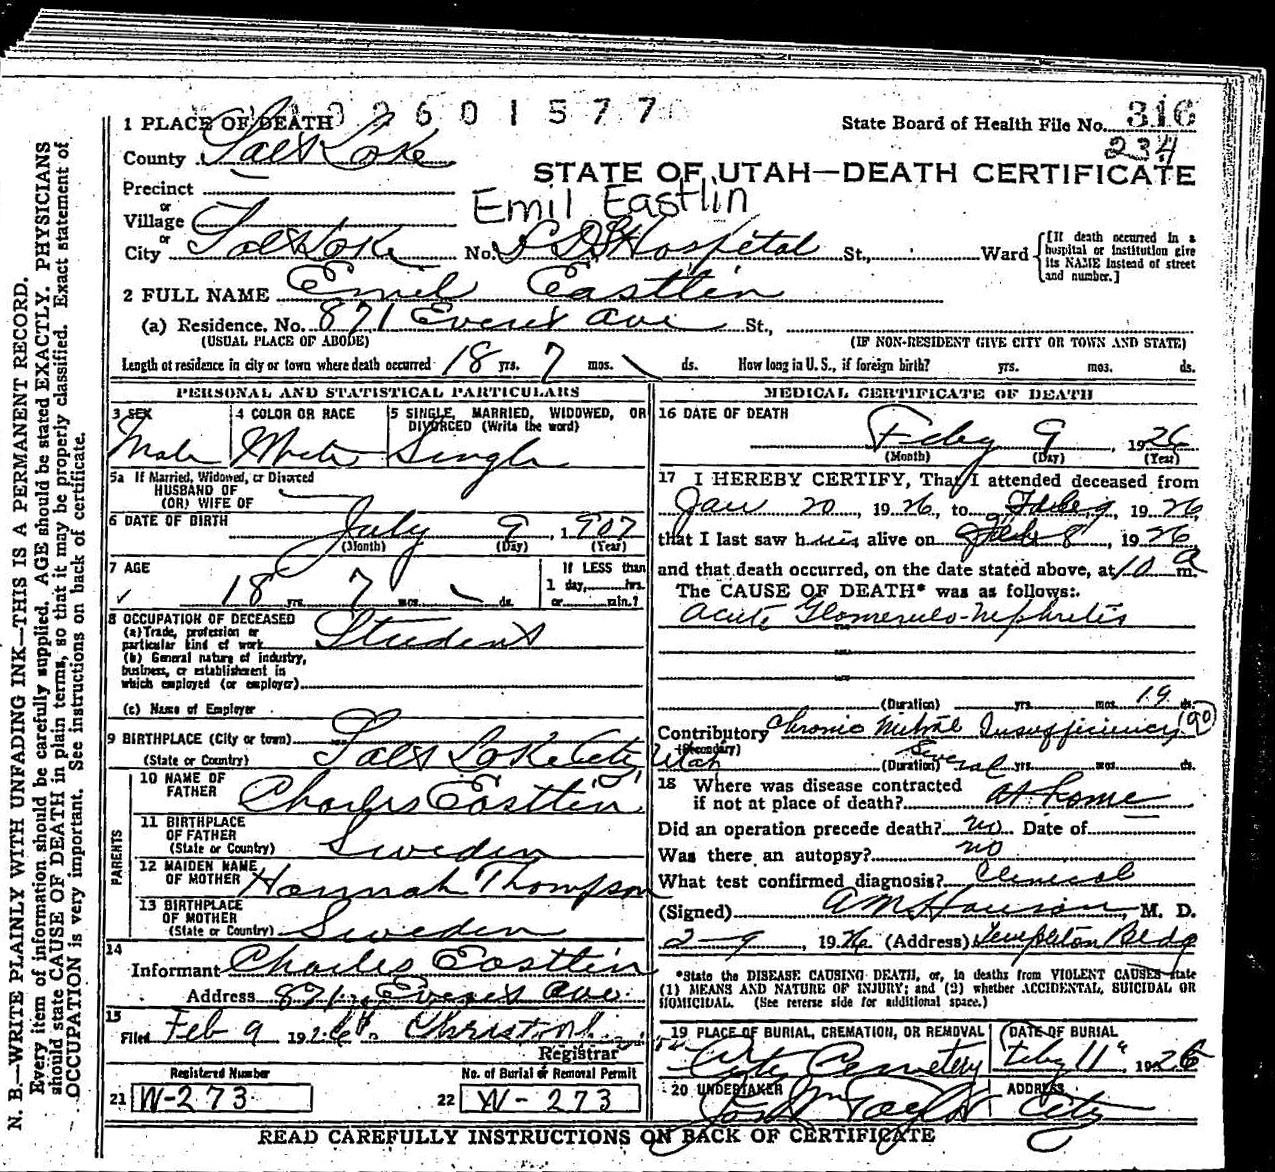 2601577
1 PLACE OF DEATH
State Board of Health File No. 316
234
County Salt Lake
STATE OF UTAH—DEATH CERTIFICATE
Precinct
or
Village
Emil Eastlin
or
City Salt Lake No. L D S Hospital St., Ward
[If death occurred in a hospital or institution give its NAME instead of street and number.]
2 FULL NAME Emil Eastlin
(a) Residence. No. 871 Everet Ave St.,
(USUAL PLACE OF ABODE) (IF NON-RESIDENT GIVE CITY OR TOWN AND STATE)
Length of residence in city or town where death occurred 18 yrs. 7 mos. \ ds. How long in U. S., if foreign birth? yrs. mos. ds.
PERSONAL AND STATISTICAL PARTICULARS
3 SEX
Male
4 COLOR OR RACE
White
5 SINGLE, MARRIED, WIDOWED, OR DIVORCED (Write the word)
Single
5a If Married, Widowed, or Divorced
HUSBAND OF
(OR) WIFE OF
6 DATE OF BIRTH
July 9, 1907
(Month) (Day) (Year)
7 AGE
18 yrs. 7 mos. \ ds.
If LESS than
1 day, hrs.
or min.?
8 OCCUPATION OF DECEASED
(a) Trade, profession or
particular kind of work Student
(b) General nature of industry,
business, or establishment in
which employed (or employer)
(c) Name of Employer
9 BIRTHPLACE (City or town)
(State or Country) Salt Lake City Utah
PARENTS
10 NAME OF
FATHER Charles Eastlin
11 BIRTHPLACE
OF FATHER
(State or Country) Sweden
12 MAIDEN NAME
OF MOTHER Hannah Thompson
13 BIRTHPLACE
OF MOTHER
(State or Country) Sweden
14
Informant Charles Eastlin
Address 871 Everet Ave
15
Filed Feb 9 1926
Registrar
Registered Number
21 W-273
No. of Burial or Removal Permit
22 W-273
MEDICAL CERTIFICATE OF DEATH
16 DATE OF DEATH
Feby 9, 1926
(Month) (Day) (Year)
17 I HEREBY CERTIFY, That I attended deceased from
Jan 20, 1926, to Feb 9, 1926,
that I last saw him alive on Feb 8, 1926,
and that death occurred, on the date stated above, at 10 a m.
The CAUSE OF DEATH* was as follows:
Acute Glomerulo-nephritis
(Duration) yrs. mos. 19 ds.
Contributory Chronic Mitral Insufficiency (90)
(Secondary)
(Duration) Several yrs. mos. ds.
18 Where was disease contracted
if not at place of death? at home
Did an operation precede death? no Date of
Was there an autopsy? no
What test confirmed diagnosis? Clinical
(Signed) , M. D.
2-9, 1926 (Address) Templeton Bldg
*State the DISEASE CAUSING DEATH, or, in deaths from VIOLENT CAUSES state
(1) MEANS AND NATURE OF INJURY; and (2) whether ACCIDENTAL, SUICIDAL OR
HOMICIDAL. (See reverse side for additional space.)
19 PLACE OF BURIAL, CREMATION, OR REMOVAL
City Cemetery
DATE OF BURIAL
Feby 11 1926
20 UNDERTAKER
Taylor
ADDRESS
City
READ CAREFULLY INSTRUCTIONS ON BACK OF CERTIFICATE
N. B.—WRITE PLAINLY WITH UNFADING INK—THIS IS A PERMANENT RECORD.
Every item of information should be carefully supplied. AGE should be stated EXACTLY. PHYSICIANS
should state CAUSE OF DEATH in plain terms, so that it may be properly classified. Exact statement of
OCCUPATION is very important. See instructions on back of certificate.